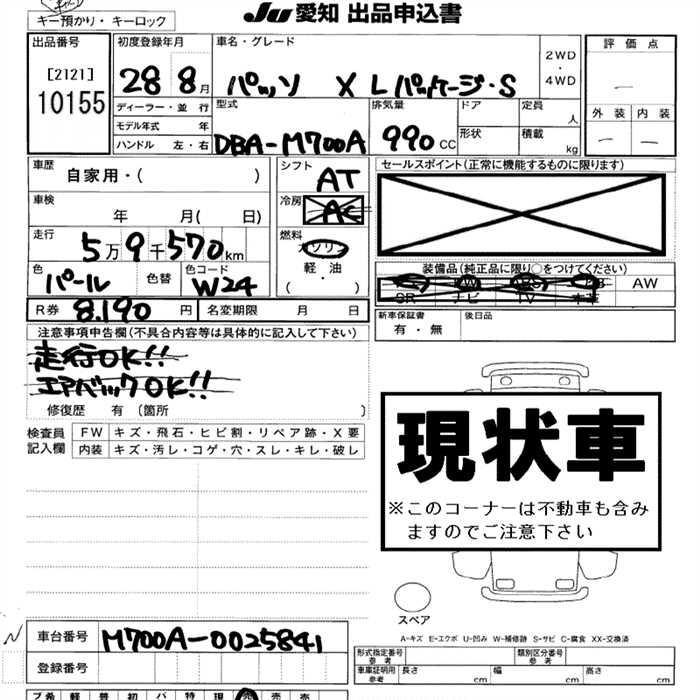 JU 愛知 出品申込書
キー預かり・キーロック
出品番号
[2121]
10155
初度登録年月
28 8 月
ディーラー・並行
モデル年式 年
ハンドル 左・右
車名・グレード
パッソ X Lパッケージ・S
2WD
・
4WD
型式
DBA-M700A
排気量
990 CC
ドア
形状
定員
人
積載
kg
評価点
—
外装 内装
— —
車歴
自家用・( )
車検
年 月( 日)
走行
5万9千570km
色
パール
色替
色コード
W24
シフト
AT
冷房
AC
燃料
ガソリン
軽油
( )
R券 8.190 円
名変期限 月 日
セールスポイント(正常に機能するものに限ります)
装備品(純正品に限り○をつけてください)
SR ナビ TV 本革 AW
新車保証書
有・無
後日品
注意事項申告欄(不具合内容等は具体的に記入して下さい)
走行OK!!
エアバックOK!!
修復歴 有(箇所 )
検査員
記入欄
FW キズ・飛石・ヒビ割・リペア跡・X要
内装 キズ・汚レ・コゲ・穴・スレ・キレ・破レ
現状車
※このコーナーは不動車も含み
ますのでご注意下さい
スペア
A-キズ E-エクボ U-凹み W-補修跡 S-サビ C-腐食 XX-交換済
車台番号 M700A-0025841
登録番号
型式指定番号
参考
類別区分番号
参考
車庫証明用
参考
長さ cm
幅 cm
高さ cm